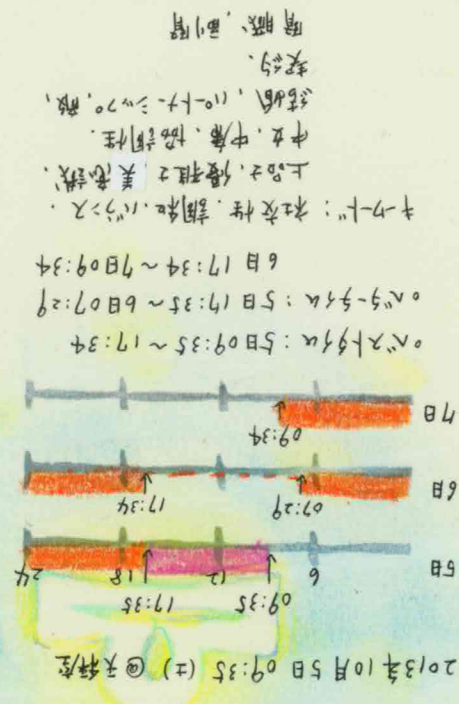 2013年10月5日 09:35 (土) @ 天秤座
09:35 17:35
5日 6 12 18 24
07:29 17:34
6日
09:34
7日
○ベストタイム：5日 09:35 ～ 17:34
○ベータータイム：5日 17:35 ～ 6日 07:29
6日 17:34 ～ 7日 09:34
キーワード：社交性、調和、バランス、
上品さ、優雅さ、美意識、
中立、中庸、協調性、
結婚、パートナーシップ、敵、
契約、
腎臓、副腎